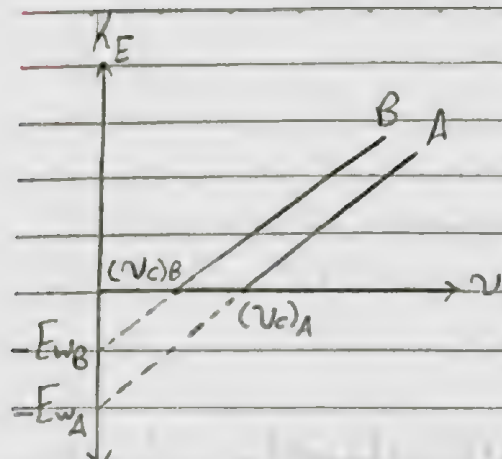 K_E
B A
(νc)B
(νc)A
ν
-EwB
-EwA